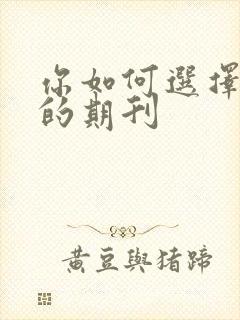 你如何選擇
的期刊
黃豆與猪蹄